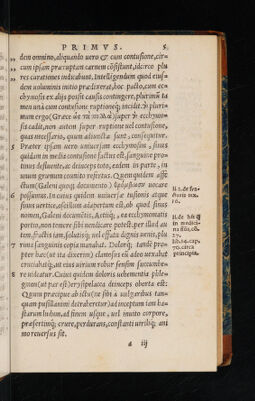 PRIMVS. 5
dem omnino, aliquando uero & cum contusione, cir
cum ipsam præruptam carnem consistant, idcirco plu
res curationes indicabunt. Intelligendum quod eius
dem uoluminis initio præderat, hoc pacto, cum ec
chymosis ex dijs posit causis contingere, plurimũ ta
men unà cum contusione ruptioneq; incidit. Et pluri
mum ergo (Græce super ecchymo
sis cadit, non autem super ruptione uel contusione,
quas necessario, quum adiuncta sunt, consequatur.
5 Præter ipsam uero uniuersam ecchymosin, sinus
quidam in medio contusione factus est, sanguine pro
tinus defluente, ac deinceps toto, eodem in parte, in
unum grumum coumito refertus. Quem quidem affe
ctum (Galeni quoq; documento) uocare
6 possumus. In cuius quidem uniuersæ tusionis atque
sinus uertice, asciilium adapertum est, ab quod sinus
nomen, Galeni documentis, Aetijq;, ea ecchymomatis
portio, non temere sibi uendicare potest. per illud au
tem, fractis tam, sublatisq; uel essatu dignis uenis, plu
7 rimus sanguinis copia manabat. Dolorq; tandẽ pro
pter hæc (ut ita dixerim) clamosus eò adeo urebat
cruciabatq;, ut eius uirium robur sensim succumbe-
8 re uideatur. Cuius quidem doloris uehementia phleg
monen (ut par est) erysipelacea deinceps oborta est:
Quum præcipue ab ictu (ne sibi à uulgaribus tan-
quam pusillanimi detraheretur) ad inceptum iam ha-
starum lusum, ad finem usque, uel inuito corpore,
præsertimq; crure, perdurans, constanti uiriliq; ani
mo reuersus sit.
li. 2. de fra
cturis tex.
10.
li. de his q̃
in medicin
na fiũt, cõ.
27.
lib. 14. cap.
70. circa
principia.
a iij